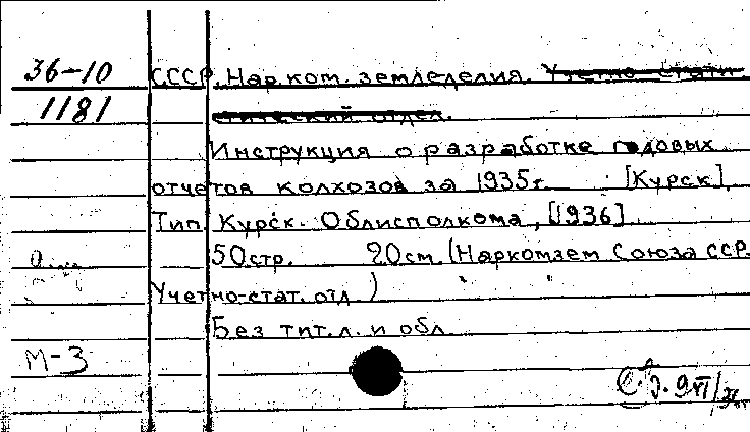 36-10 СССР. Нар. ком. земледелия. Учетно-стати-
1181 стический отдел.
Инструкция о разработке годовых
отчетов колхозов за 1935 г. [Курск],
Тип. Курск. Облисполкома, [1936]
50 стр. 20 см. (Наркомзем Союза ССР.
Учетно-стат. отд.)
Без тит. л. и обл.
М-3